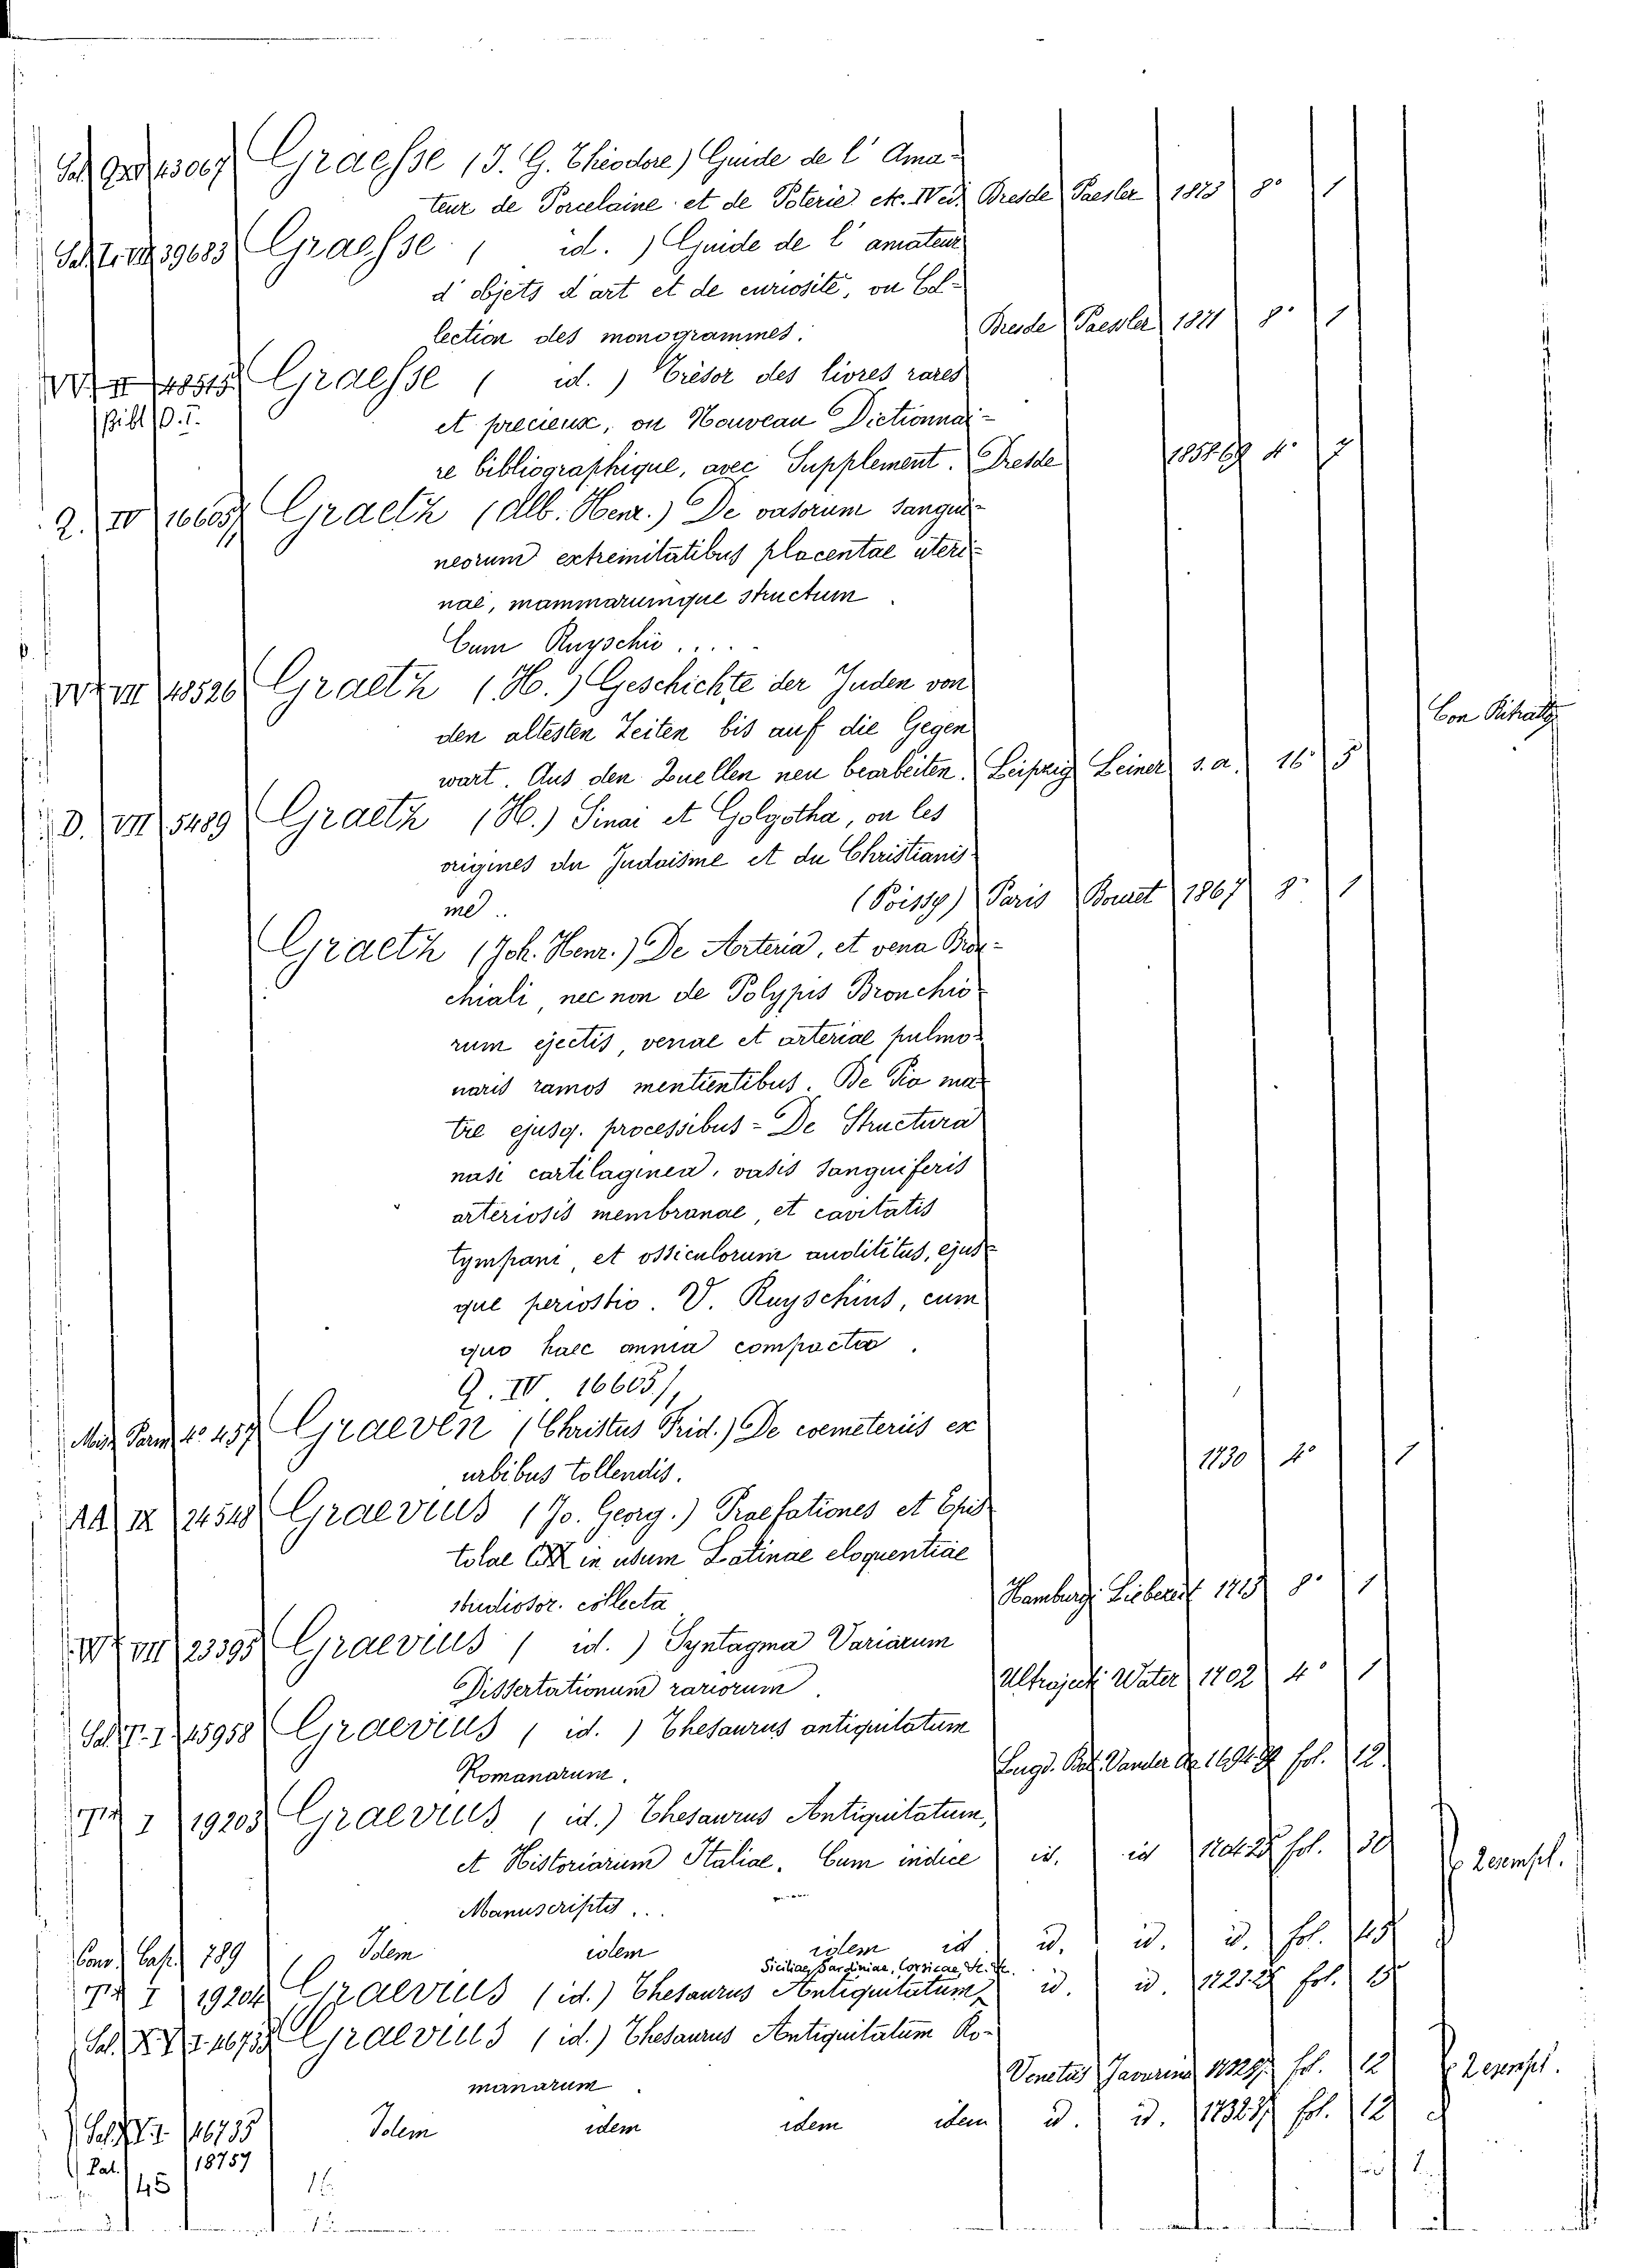 Graesse (J. G. Theodore) Guide de l' Ama-
teur de Porcelaine et de Poterie etc. Dresde Paesler 1873 8° 1
39683 Graesse ( id. ) Guide de l' amateur
d' objets d'art et de curiosité, ou Col-
lection des monogrammes. Dresde Paesler 1871 8° 1
Graesse ( id. ) Trésor des livres rares
et precieux, ou Nouveau Dictionnai-
re bibliographique, avec Supplement. Dresde 4° 7
IV Graetz (Alb. Henr.) De vasorum sangui-
neorum extremitatibus placentae uteri-
nae, mammarumque structum
Cum Ruyschio ....
VIII 48526 Graetz (H.) Geschichte der Juden von
den altesten Zeiten bis auf die Gegen
wart. Aus den Quellen neu bearbeiten. Leipzig Leiner s. a. 16° 5
D. VII 5489 Graetz (H.) Sinai et Golgotha, ou les
origines du Judaisme et du Christianis-
me .. (Poissy) Paris 1867 8° 1
Graetz (Joh. Henr.) De Arteria, et vena Bron-
chiali, nec non de Polypis Bronchio-
rum ejectis, venae et arteriae pulmo-
naris ramos mentientibus. De Pia ma-
tre ejusq. processibus - De Structura
nasi cartilaginea, vasis sanguiferis
arteriosis membranae, et cavitatis
tympani, et ossiculorum audititus, ejus-
que periostio. V. Ruyschius, cum
quo haec omnia compacta.
Q. IV 16605/,
4° 457 Graeven (Christus Frid.) De coemeteriis ex
urbibus tollendis. 1730 4° 1
AA IX 24548 Graevius (Jo. Georg.) Praefationes et Epis-
tolae CXX in usum Latinae eloquentiae
studiosor. collecta Hamburg. 8° 1
VII 23395 Graevius ( id. ) Syntagma Variarum
Dissertationum rariorum. Ultrajecti Water 1702 4° 1
45958 Graevius ( id. ) Thesaurus antiquitatum
Romanarum. Lugd. Bat. Vander fol. 12
I 19203 Graevius ( id.) Thesaurus Antiquitatum,
et Historiarum Italiae. Cum indice id. id fol. 30
Manuscriptis ...
789 Idem idem idem id id. id. id. fol. 45
Siciliae, Sardiniae, Corsicae, &c. &c.
I 19204 Graevius (id.) Thesaurus Antiquitatum, id. id. fol. 15
Graevius (id.) Thesaurus Antiquitatum Ro-
manarum Venetiis Javarina fol. 12
46735 Idem idem idem idem id. id. fol. 12
Pal. 18757
45